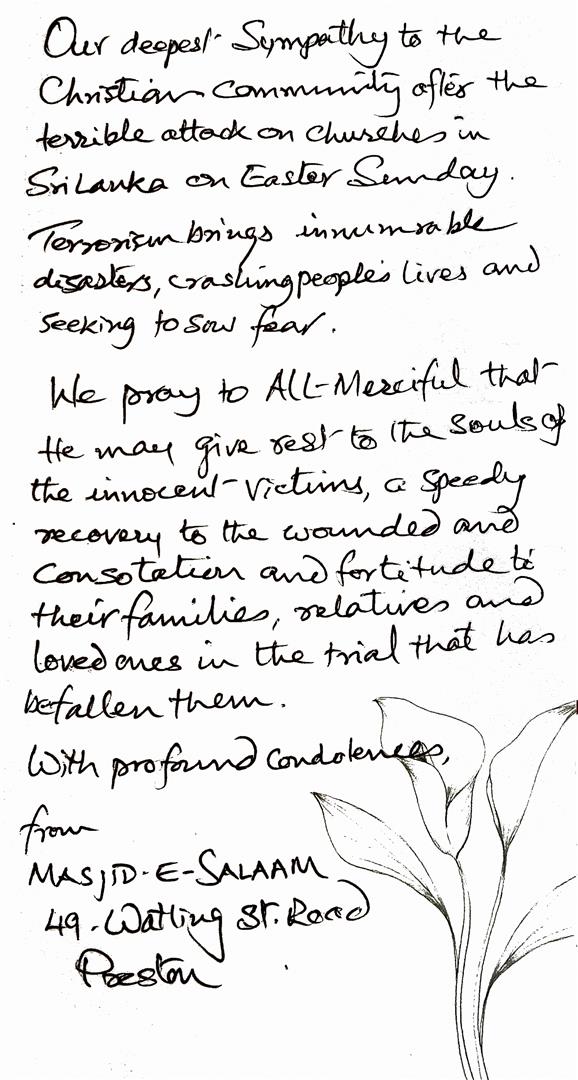 Our deepest Sympathy to the
Christian Community after the
terrible attack on churches in
Sri Lanka on Easter Sunday.
Terrorism brings innumrable
disasters, crashing people's lives and
seeking to sow fear.
We pray to All-Merciful that
He may give rest to the souls of
the innocent victims, a speedy
recovery to the wounded and
Consotation and fortitude to
their families, relatives and
loved ones in the trial that has
befallen them.
With profound condolences,
from
MASJID-E-SALAAM
49. Watling St. Road
Preston